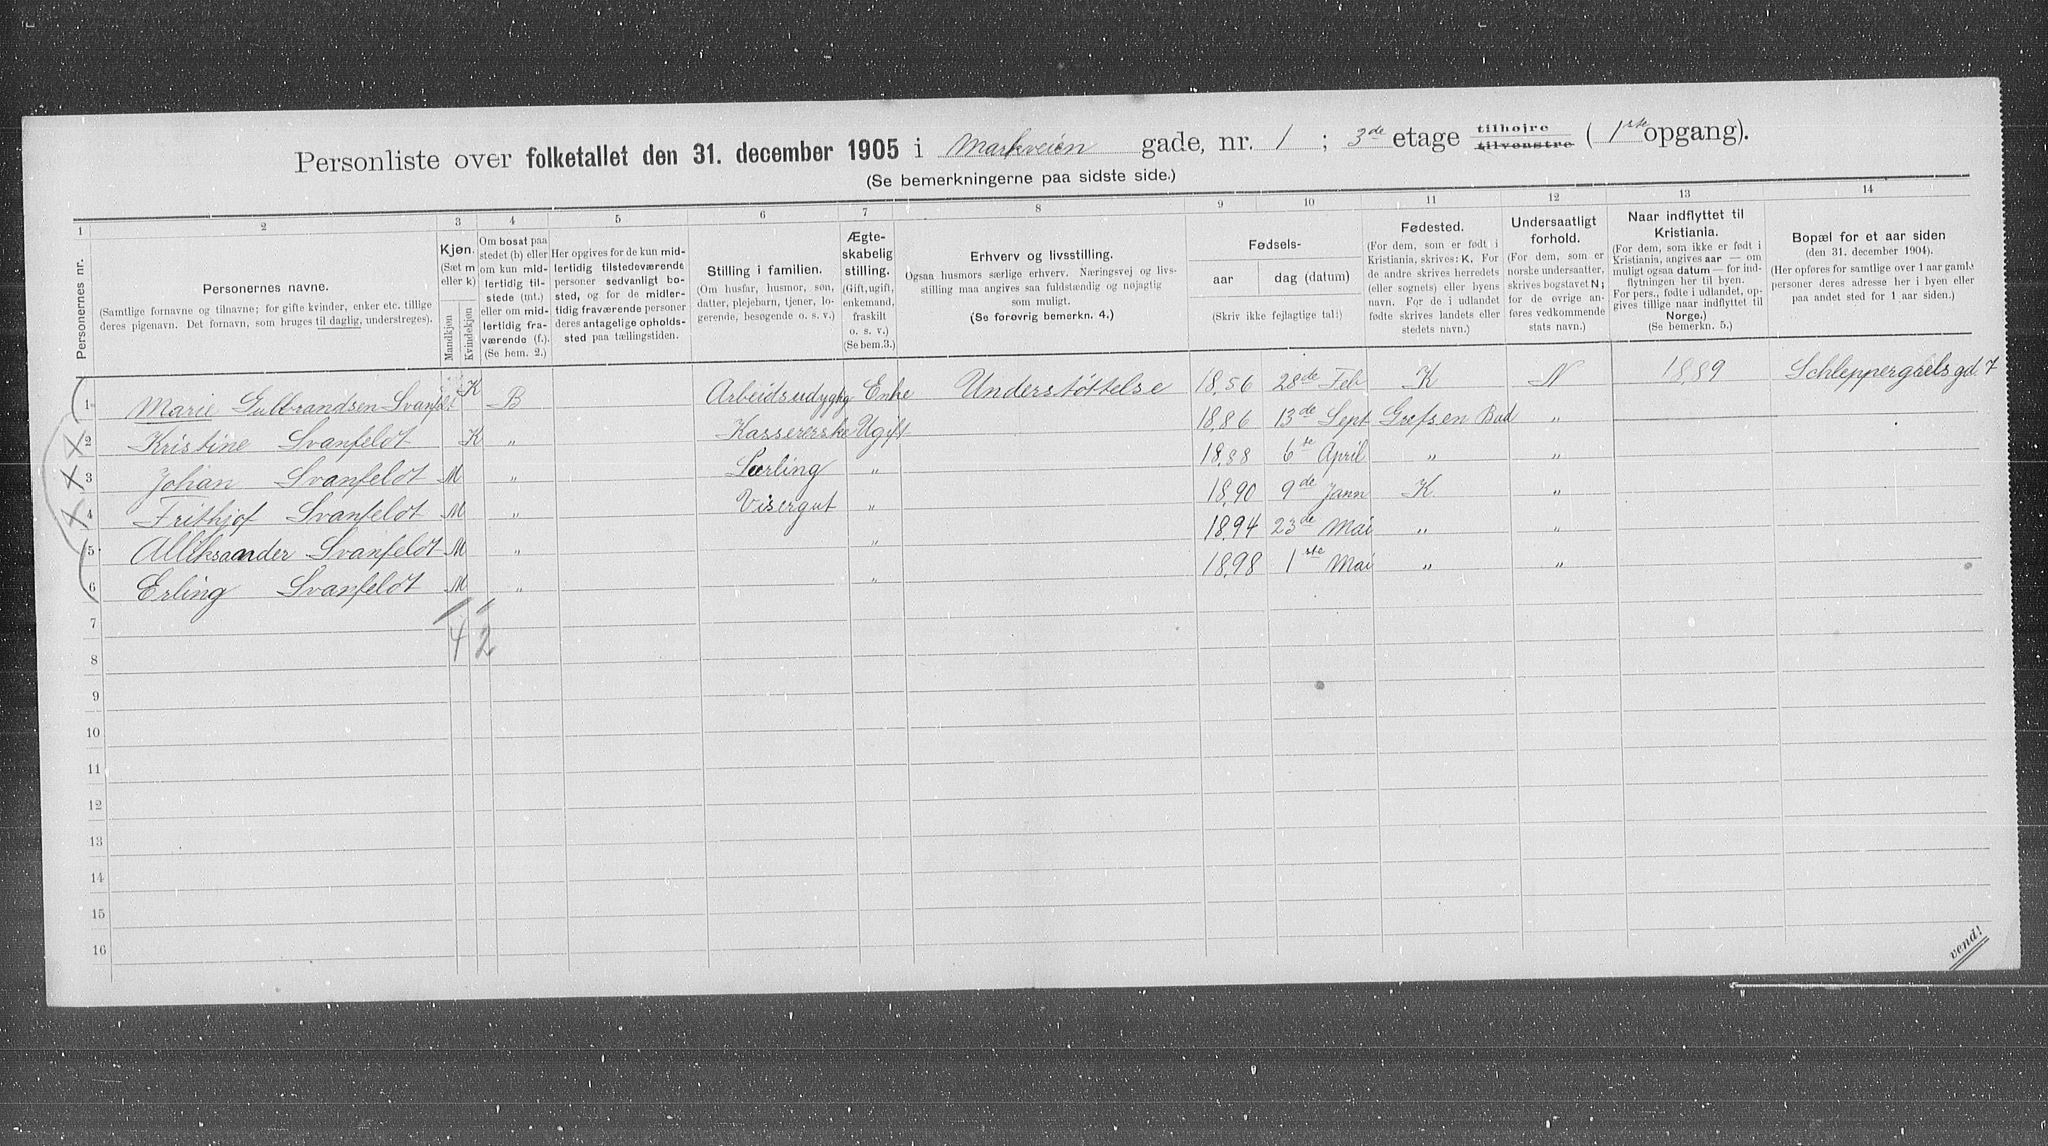 Personliste over folketallet den 31. december 1905 i Markveien gade, nr. 1 ; 3de etage tilhøjre tilvenstre ( 1ste opgang).
(Se bemerkningerne paa sidste side.)
1 2 3 4 5 6 7 8 9 10 11 12 13 14
Personernes nr.
Personernes navne.
(Samtlige fornavne og tilnavne; for gifte kvinder, enker etc. tillige deres pigenavn. Det fornavn, som bruges til daglig, understreges).
Kjøn.
(Sæt m eller k)
Mandkjøn
Kvindekjøn
Om bosat paa stedet (b) eller om kun midlertidig tilstede (mt.) eller om midlertidig fraværende (f.). (Se bem. 2.)
Her opgives for de kun midlertidig tilstedeværende personer sedvanligt bosted, og for de midlertidig fraværende personer deres antagelige opholdssted paa tællingstiden.
Stilling i familien.
(Om husfar, husmor, søn, datter, plejebarn, tjener, logerende, besøgende o. s. v.)
Ægteskabelig stilling.
(Gift, ugift, enkemand, fraskilt o. s. v.)
(Se bem. 3.)
Erhverv og livsstilling.
Ogsaa husmors særlige erhverv. Næringsvej og livsstilling maa angives saa fuldstændig og nøjagtig som muligt.
(Se forøvrig bemerkn. 4.)
Fødsels-
aar dag (datum)
(Skriv ikke fejlagtige tal!)
Fødested.
(For dem, som er født i Kristiania, skrives: K. For de andre skrives herredets (eller sognets) eller byens navn. For de i udlandet fødte skrives landets eller stedets navn.)
Undersaatligt forhold.
(For dem, som er norske undersaatter, skrives bogstavet N; for de øvrige anføres vedkommende stats navn.)
Naar indflyttet til Kristiania.
(For dem, som ikke er født i Kristiania, angives aar — om muligt ogsaa datum — for indflytningen her til byen. For pers., fødte i udlandet, opgives tillige naar indflyttet til Norge.)
(Se bemerkn. 5.)
Bopæl for et aar siden
(den 31. december 1904).
(Her opføres for samtlige over 1 aar gamle personer deres adresse her i byen eller paa andet sted for 1 aar siden.)
1 Marie Gulbrandsen Svanfelt K B Arbeidsudygtig Enke Understøttelse 1856 28de Feb K N 1889 Schleppergrels gd. 7
2 Kristine Svanfeldt K „ Kassererske Ugift 1886 13de Sept Grefsen Bad „
3 Johan Svanfeldt M „ Lærling „ 1888 6te April „ „
4 Frithjof Svanfeldt M „ Visergut „ 1890 9de Jann K „
5 Alleksaander Svanfeldt M „ „ 1894 23de Mai „ „
6 Erling Svanfeldt M „ „ 1898 1ste Mai „ „
7 4 2
8
9
10
11
12
13
14
15
16
vend!